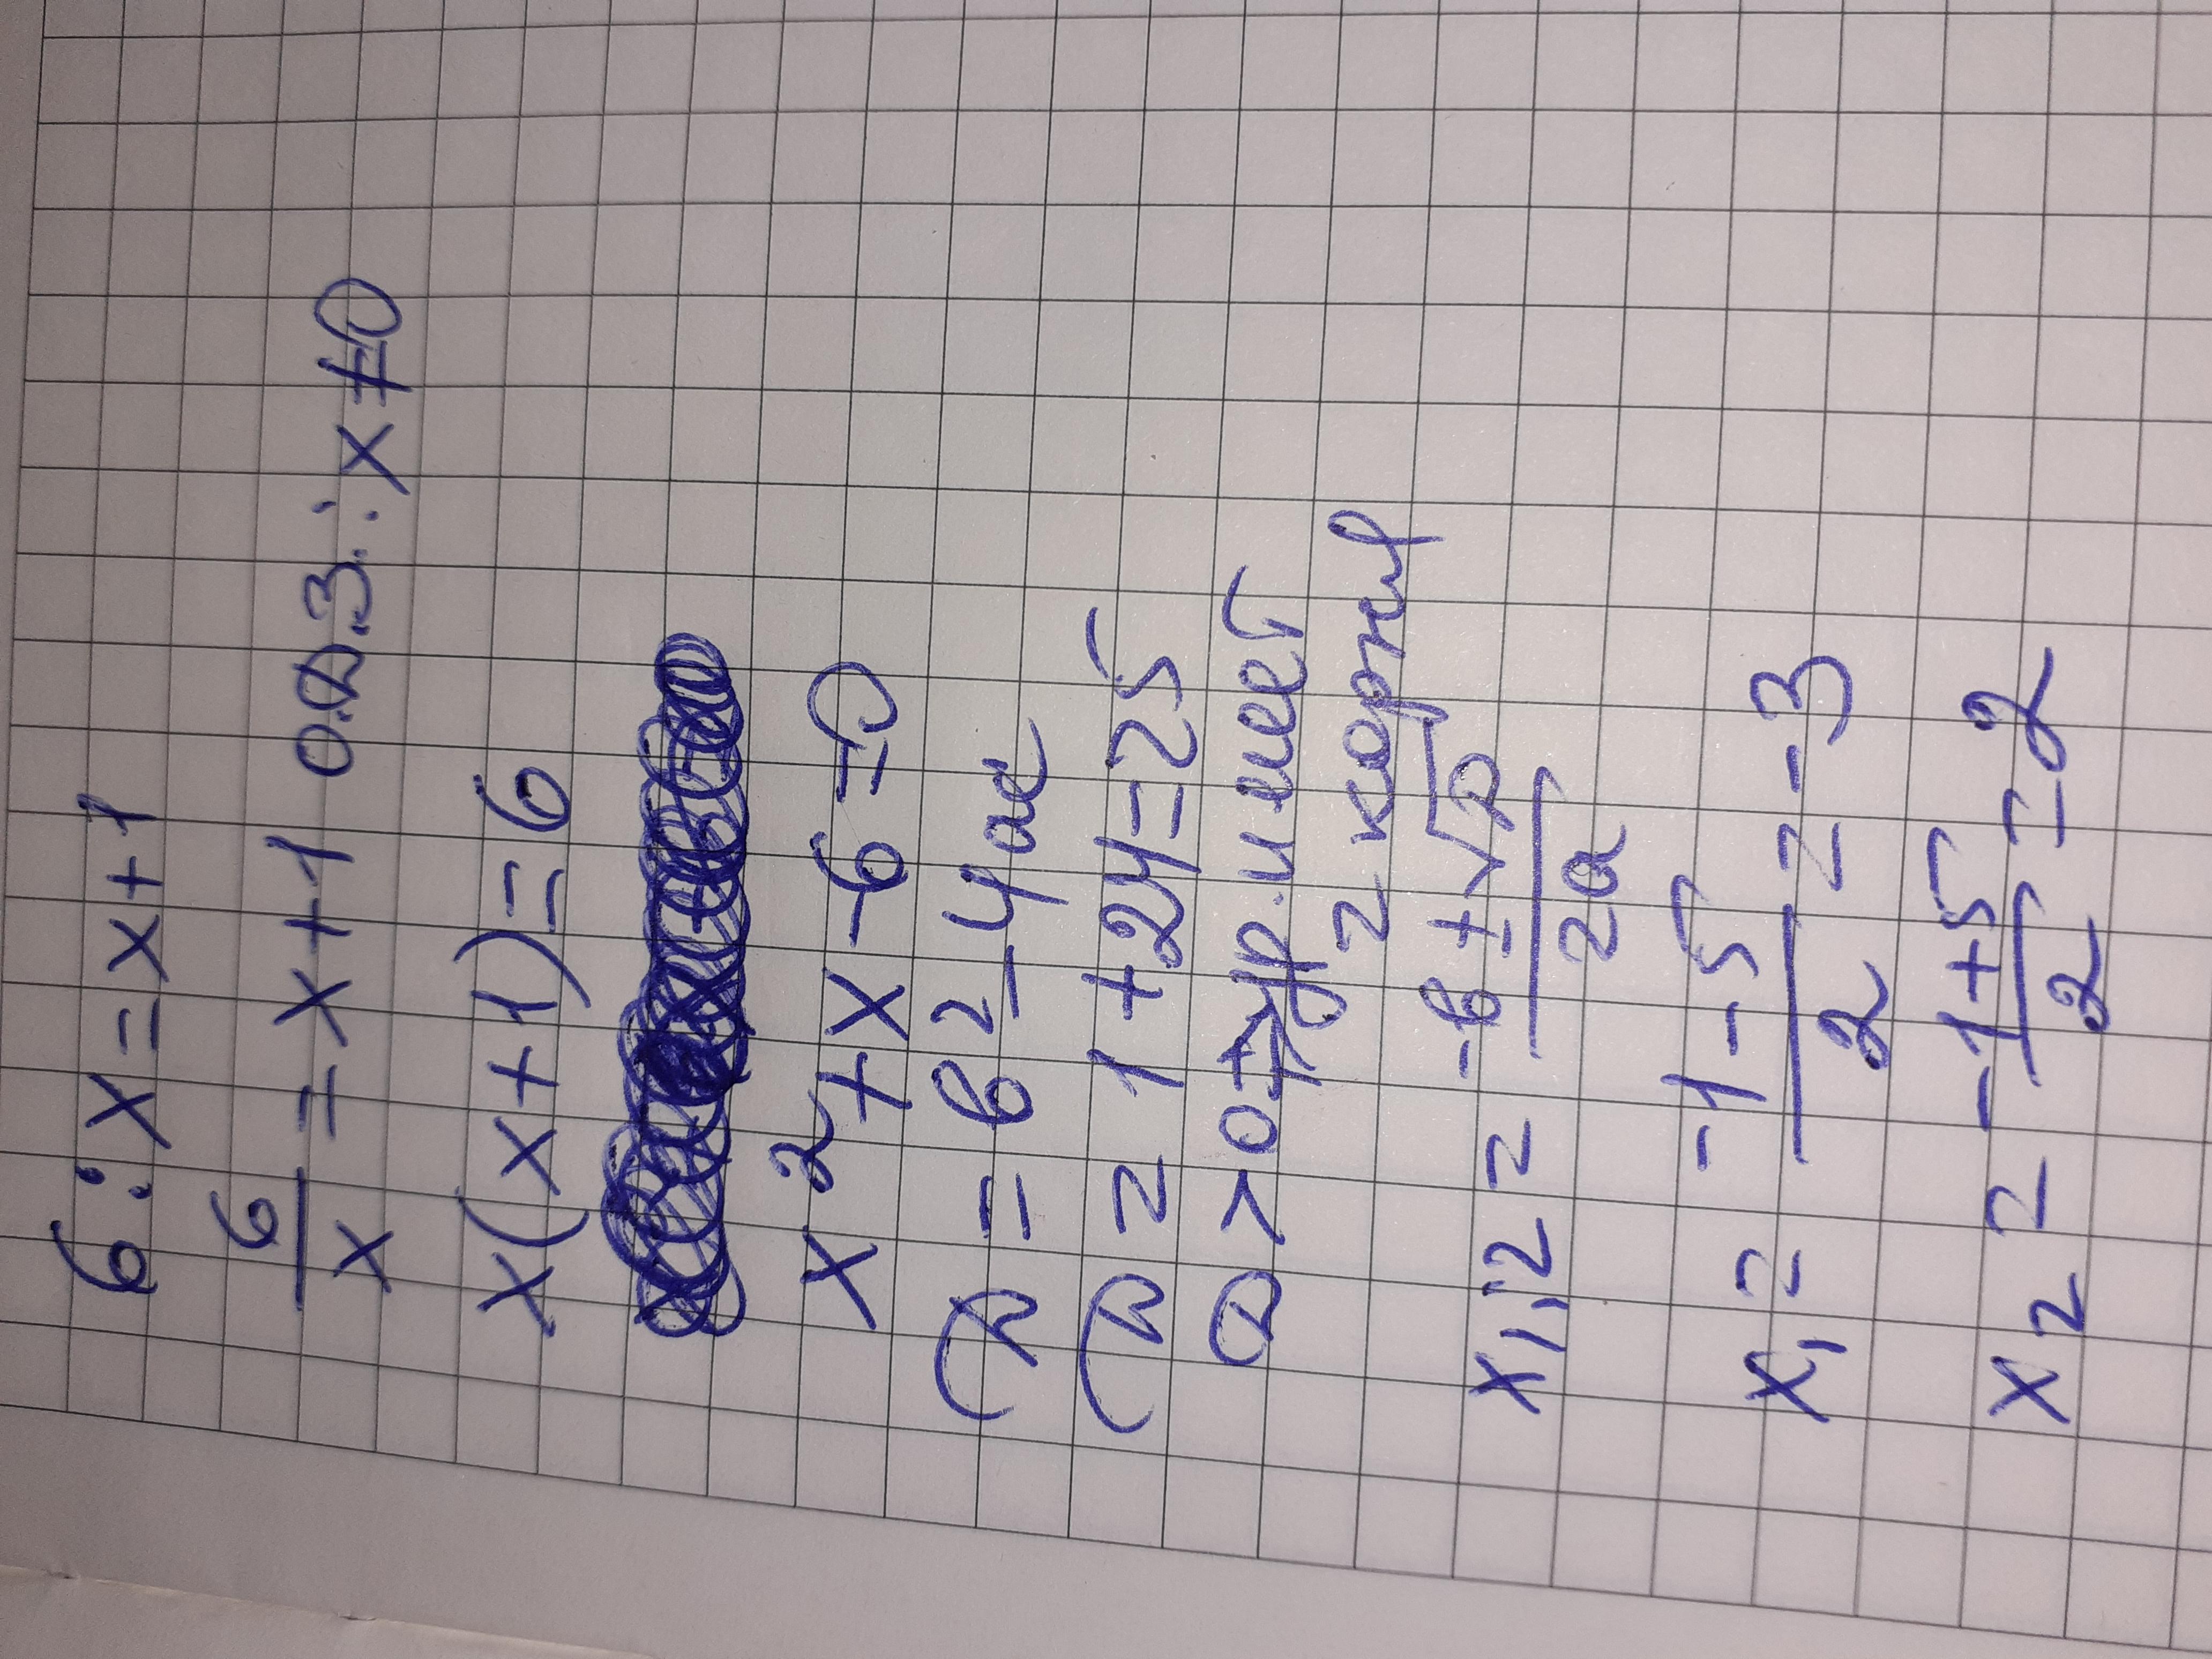 6 : x = x + 1
6/x = x + 1 О.Д.З.: x ≠ 0
x(x + 1) = 6
x² + x - 6 = 0
D = b² - 4ac
D = 1 + 24 = 25
D > 0 => ур. имеет
2 корня
x1,2 = (-b ± √D)/2a
x1 = (-1 - 5)/2 = -3
x2 = (-1 + 5)/2 = 2